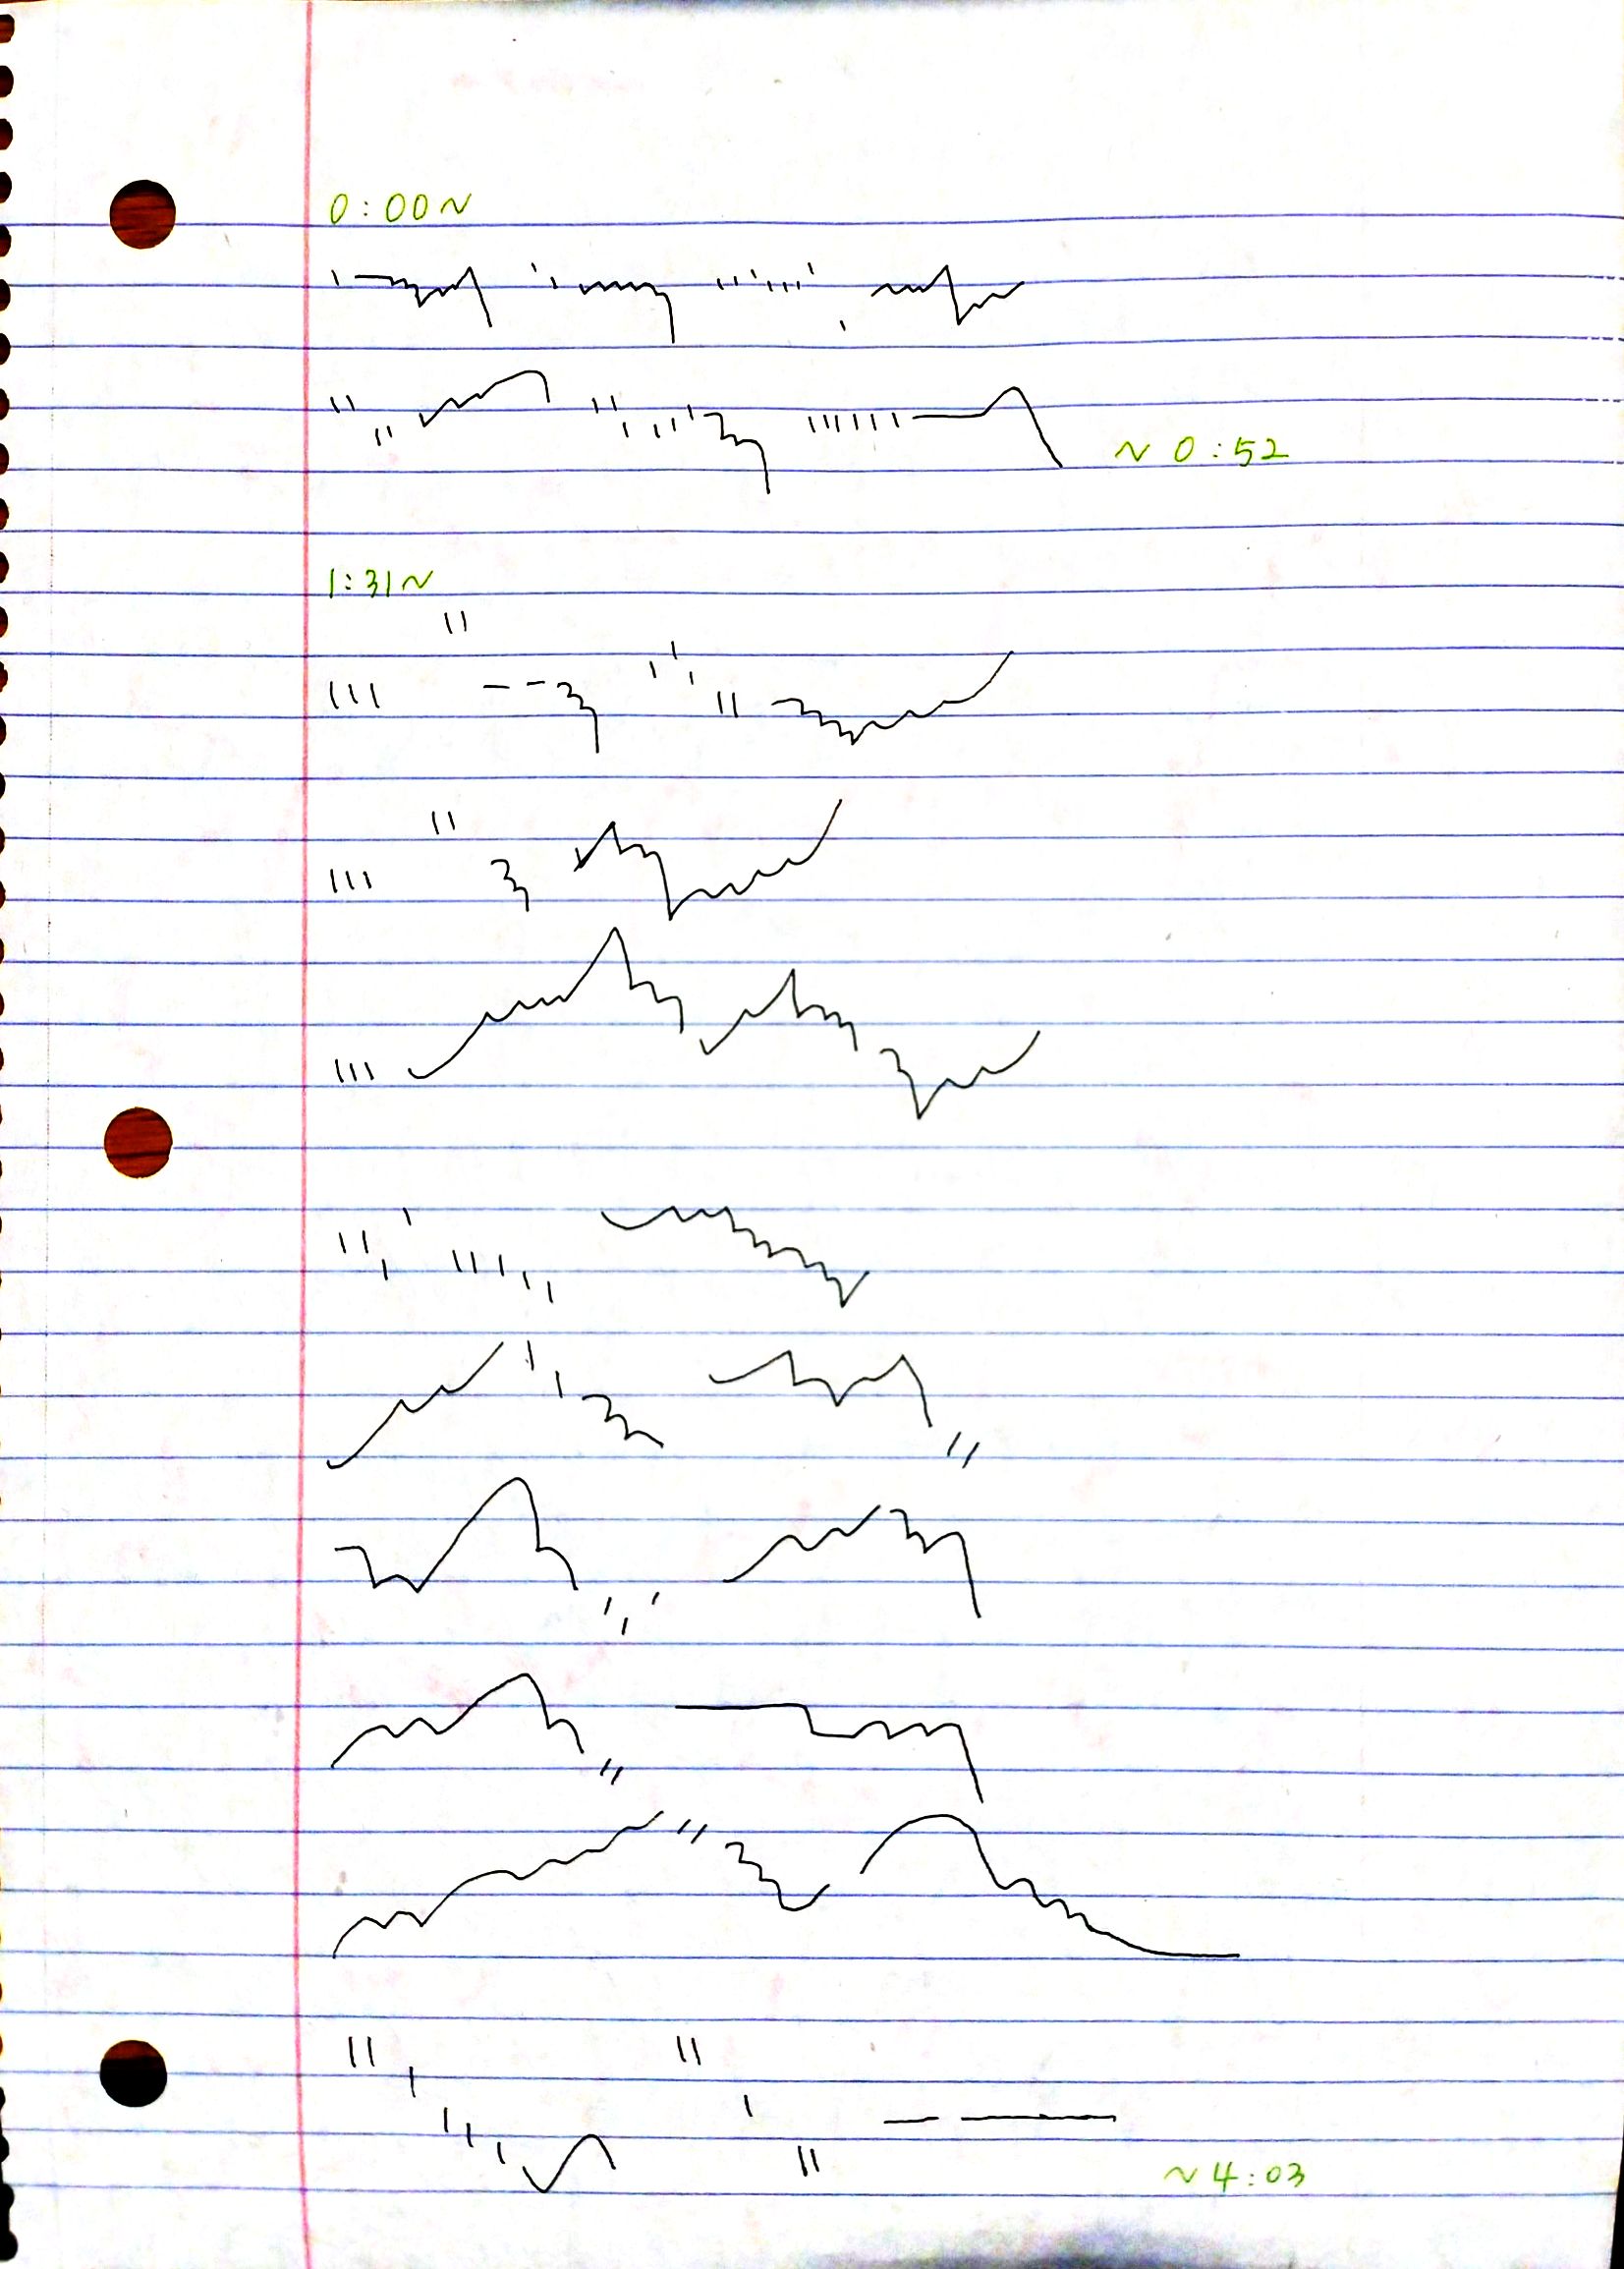 0:00~
~ 0:52
1:31~
~ 4:03